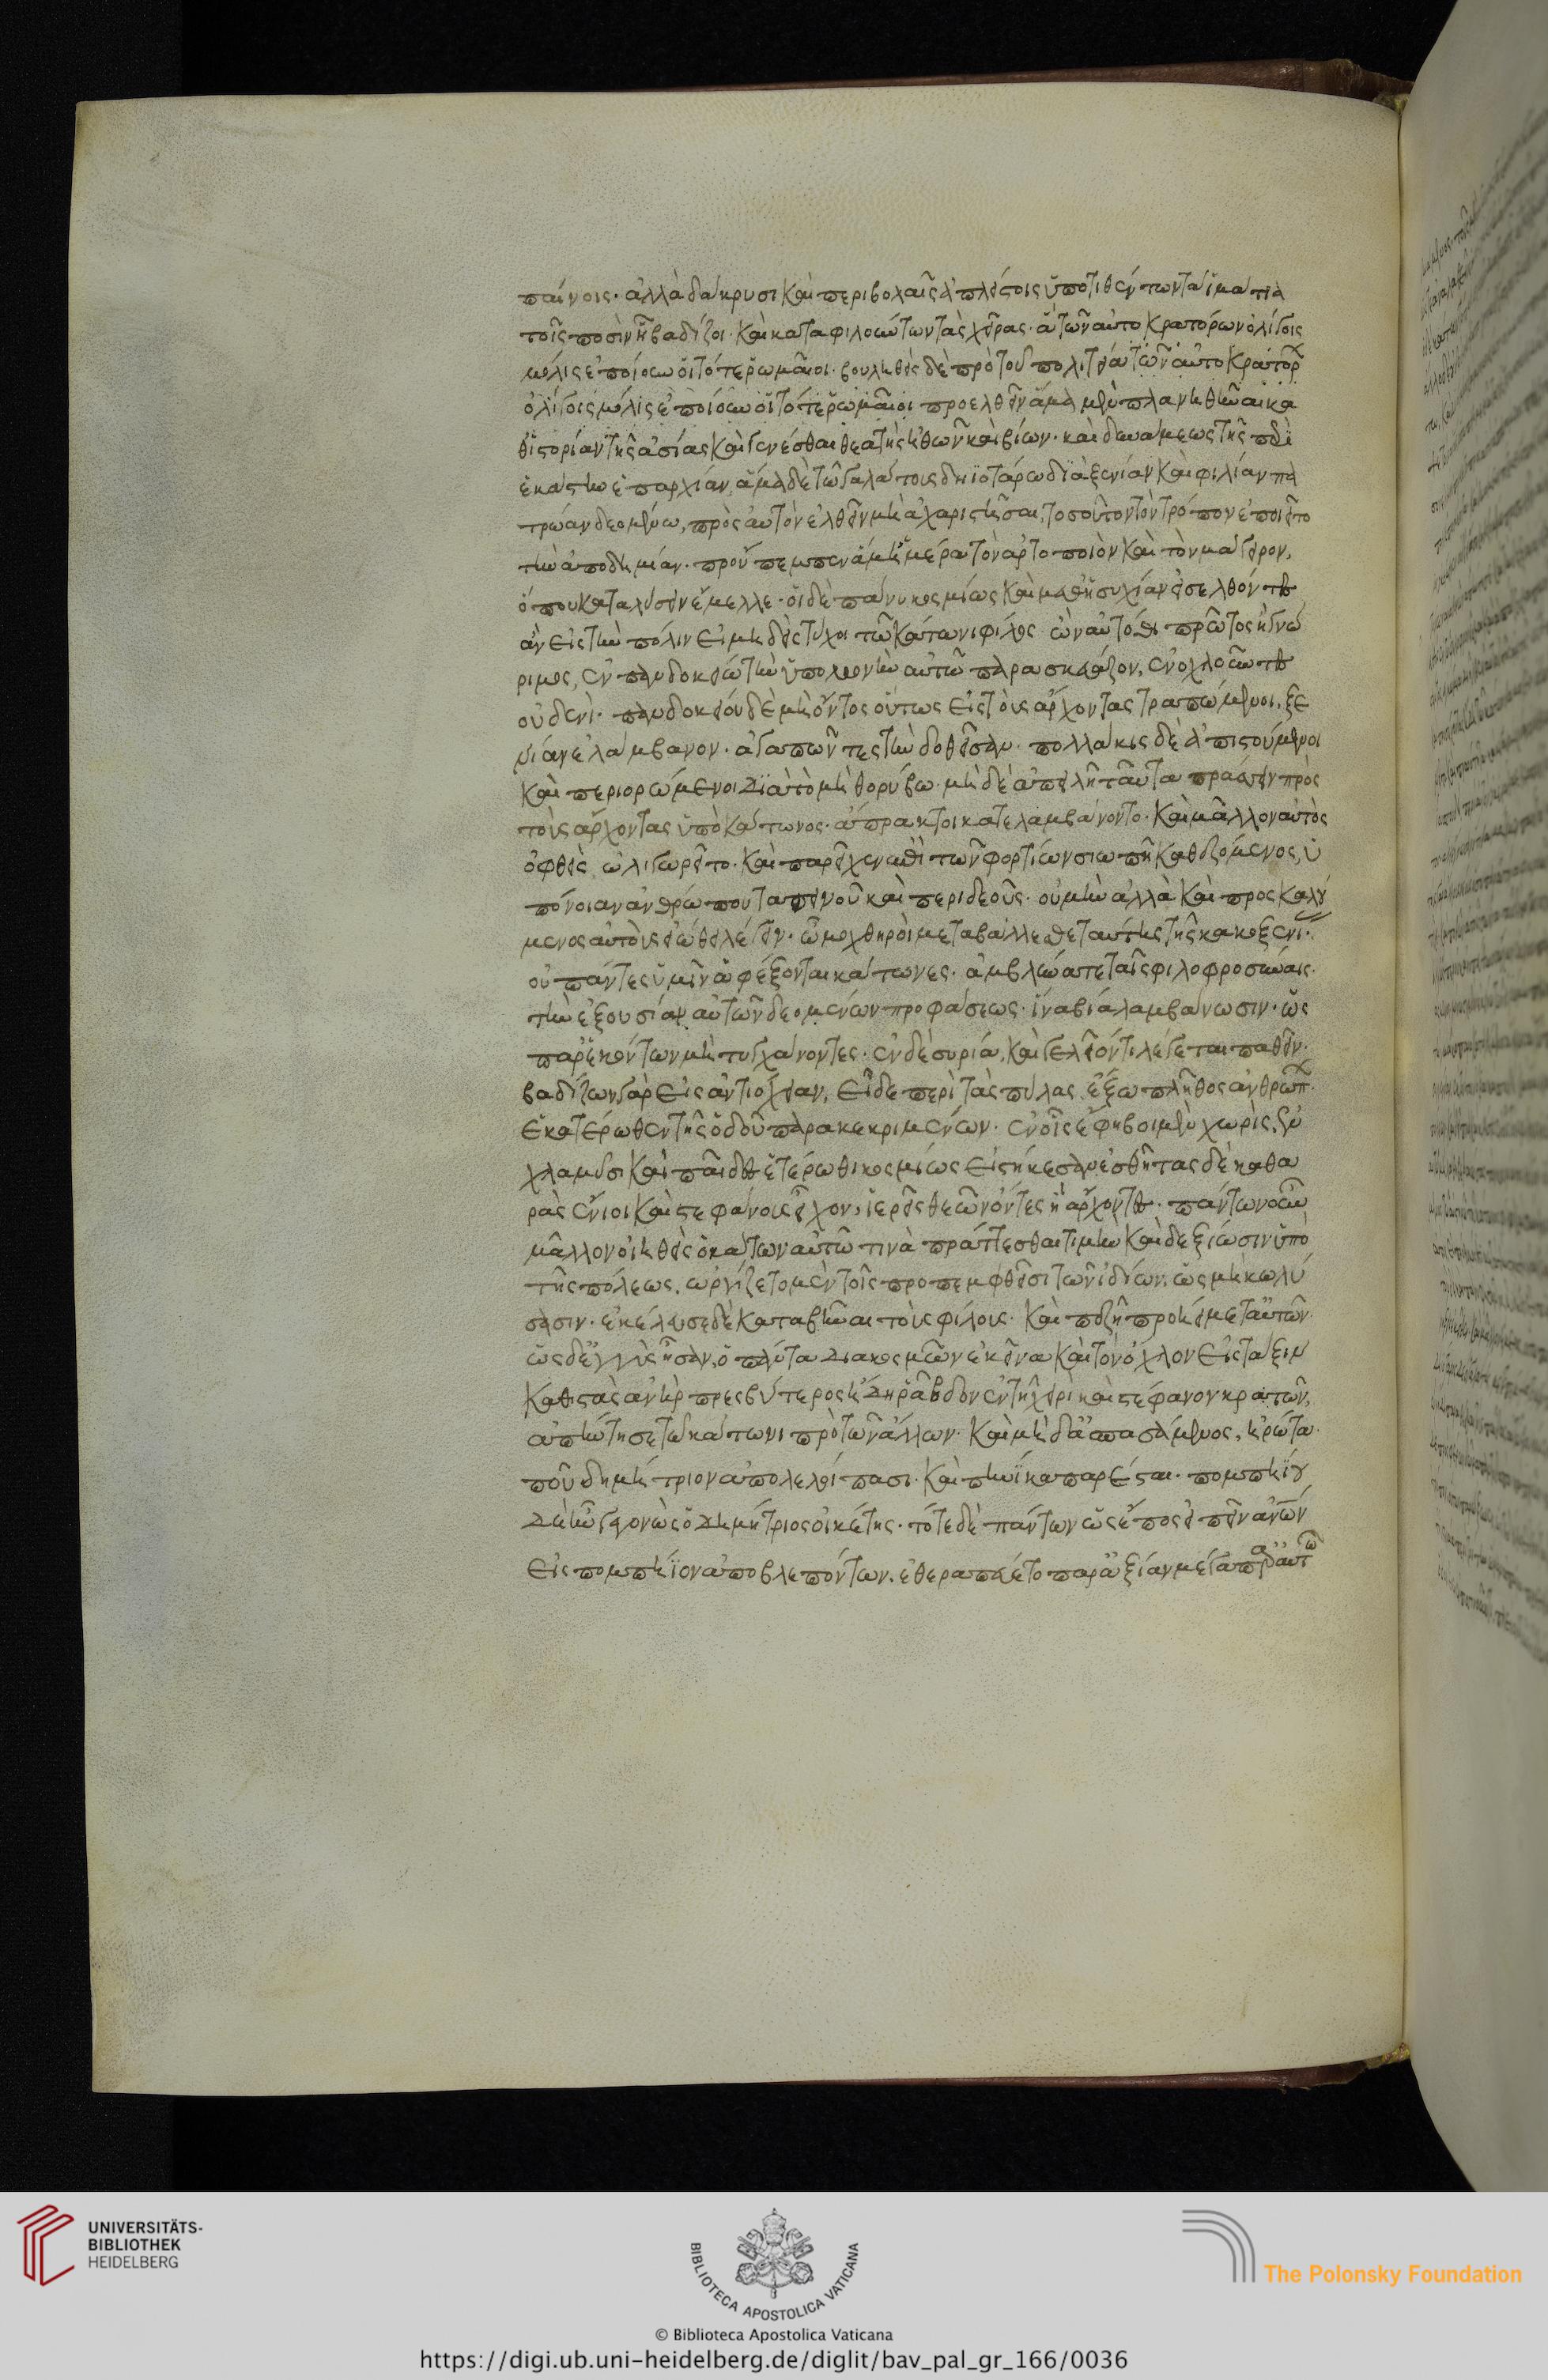 παίνοις· ἀλλὰ δάκρυσι καὶ περιβολαῖς ἀπλήστοις ὑποτιθέντων τὰ ἱμάτια
τοῖς ποσὶν ᾗ βαδίζοι· καὶ καταφιλούντων τὰς χεῖρας· ἃ τῶν αὐτοκρατόρων ὀλίγοις
μόλις ἐποίουν οἱ τότε ῥωμαῖοι· βουληθεὶς δὲ πρὸ τοῦ πολιτεία τῶν αὐτοκρατόρ
ὀλίγοις μόλις ἐποίουν οἱ τότε ῥωμαῖοι προελθεῖν ἅμα μὲν πλανηθῆναι κα
θ᾽ ἱστορίαν τῆς ἀσίας καὶ γενέσθαι θεατὴς ἠθῶν καὶ βίων· καὶ δυνάμεως τῆς περὶ
ἑκάστην ἐπαρχίαν, ἅμα δὲ τῷ γαλάτοις δηϊοτάρω διὰ ξενίαν καὶ φιλίαν πα
τρώαν δεομένω, πρὸς αὐτὸν ἐλθεῖν μὴ ἀχαριστῆσαι, τοσοῦτον τὸν τρόπον ἐποιεῖτο
τὴν ἀποδημίαν· προὔπεμπεν ἅμ᾽ ἡμέρα τὸν ἀρτοποιὸν καὶ τὸν μάγειρον,
ὅπου καταλύσειν ἔμελλε· οἱ δὲ πάνυ κοσμίως καὶ μεθ᾽ ἡσυχίαν εἰσελθόντες
ἂν εἰς τὴν πόλιν εἰ μηδεὶς τύχοι τῷ κάτωνι φίλος ὢν αὐτόθι πρῶτος ἢ γνώ
ριμος, ἐν πανδοκείω τὴν ὑποδοχὴν αὐτῷ παρασκεύαζον, ἐνοχλοῦντες
οὐδενί· πανδοκείου δὲ μὴ ὄντος οὕτως εἰς τοὺς ἄρχοντας τραπώμενοι, ξε
νίαν ἐλάμβανον· ἀγαπῶντες τὴν δοθεῖσαν· πολλάκις δὲ ἀπιστούμενοι
καὶ περιορώμενοι διὰ τὸ μὴ θορύβω· μὴ δὲ ἀπειλῇ ταῦτα πράττειν πρὸς
τοὺς ἄρχοντας ὑπὸ κάτωνος· ἄπρακτοι κατελαμβάνοντο· καὶ μᾶλλον αὐτὸς
ὀφθεὶς ὠλιγωρεῖτο· καὶ παρεῖχεν ἐπὶ τῶν φορτίων σιωπῇ καθεζόμενος, ὑ
πόνοιαν ἀνθρώπου ταπεινοῦ καὶ περιδεοῦς· οὐ μὴν ἀλλὰ καὶ προσκαλού
μενος αὐτοὺς εἰώθει λέγειν· ὦ μοχθηροὶ μεταβάλλεσθε ταύτης τῆς κακοξενι·
οὐ πάντες ὑμῖν ἀφέξονται κάτωνες· ἀμβλύνατε ταῖς φιλοφροσύναις·
τὴν ἐξουσίαν αὐτῶν δεομένων προφάσεως· ἵνα βία λαμβάνωσιν· ὡς
παρ᾽ ἑκόντων μὴ τυγχάνοντες· ἐν δὲ συρία, καὶ γελοῖόν τι λέγεται παθεῖν·
βαδίζων γὰρ εἰς ἀντιόχειαν, εἶδε περὶ τὰς πύλας ἔξω πλῆθος ἀνθρώπ·
ἑκατέρωθεν τῆς ὁδοῦ παρακεκριμένων· ἐν οἷς ἔφηβοι μὲν χωρὶς, ξὺ
χλαμύσι καὶ παῖδες ἑτέρωθι κοσμίως εἰστήκεσαν ἐσθῆτας δὲ καθα
ρὰς ἔνιοι καὶ στεφάνους εἶχον, ἱερεῖς θεῶν ὄντες ἢ ἄρχοντες· πάντων οὖν
μᾶλλον οἰηθεὶς ὁ κάτων αὐτῷ τινὰ πράττεσθαι τιμὴν καὶ δεξίωσιν ὑπὸ
τῆς πόλεως, ὠργίζετο μὲν τοῖς προπεμφθεῖσι τῶν ἰδίων, ὡς μὴ κωλύ
σασιν· ἐκέλευσε δὲ καταβῆναι τοὺς φίλους· καὶ πεζῇ προῄει μετ᾽ αὐτῶν·
ὡς δ᾽ ἐγγὺς ἦσαν, ὁ πάντα διακοσμῶν ἐκεῖνα καὶ τὸν ὄχλον εἰς τάξιν
καθιστὰς ἀνὴρ πρεσβύτερος ἤδη ῥάβδον ἐν τῇ χειρὶ καὶ στέφανον κρατῶν,
ἀπήντησε τῷ κάτωνι πρὸ τῶν ἄλλων· καὶ μηδ᾽ ἀσπασάμενος, ἠρώτα·
ποῦ δημήτριον ἀπολελοίπασι· καὶ πηνίκα παρέσται· πομπηΐου
δ᾽ ἦν γεγονὼς ὁ δημήτριος οἰκέτης· τότε δὲ πάντων ὡς ἔπος εἰπεῖν ἀνων
εἰς πομπήϊον ἀποβλεπόντων, ἐθεραπεύετο παρ᾽ ἀξίαν μέγα παρ᾽ αὐτῶ
UNIVERSITÄTS-
BIBLIOTHEK
HEIDELBERG
BIBLIOTECA APOSTOLICA VATICANA
The Polonsky Foundation
© Biblioteca Apostolica Vaticana
https://digi.ub.uni-heidelberg.de/diglit/bav_pal_gr_166/0036